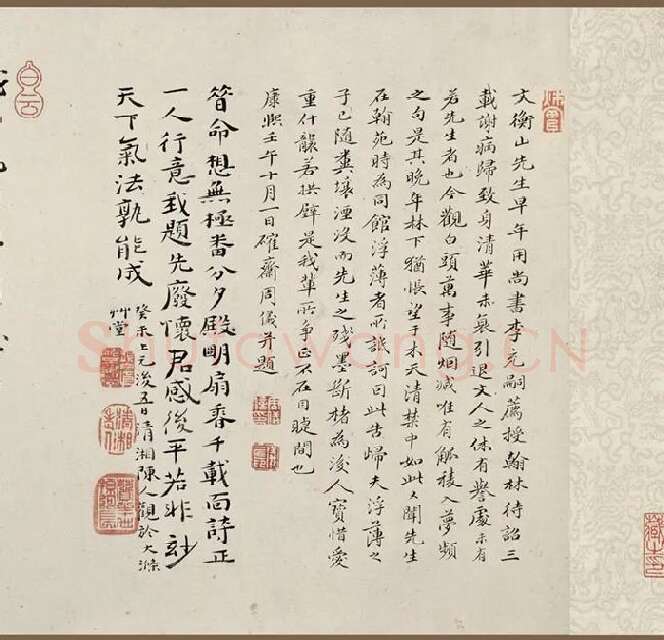 文衡山先生早年用尚書李充嗣薦授翰林待詔三
載謝病歸致身清華未衰引退文人之休有譽處未有
若先生者也今觀白頭萬事随烟滅唯有觚稜入夢頻
之句是其晚年林下猶悵望于木天清禁中如此又聞先生
在翰苑時為同館浮薄者所詆訶曰此告歸夫浮薄之
子已随糞壤湮沒而先生之殘墨斷楮為後人寶惜愛
重什襲若拱璧是我輩所争正不在目睫間也
康熙壬午十月一日確齋周儀并題
昝命想無極番分夕殿明扇奉千載面詩正
一人行意我題先廢懷君感後平若非
天下氣法孰能成
癸未上元後五日清湘陳人觀於大滌
艸堂
白云
ShuFaWang.CN